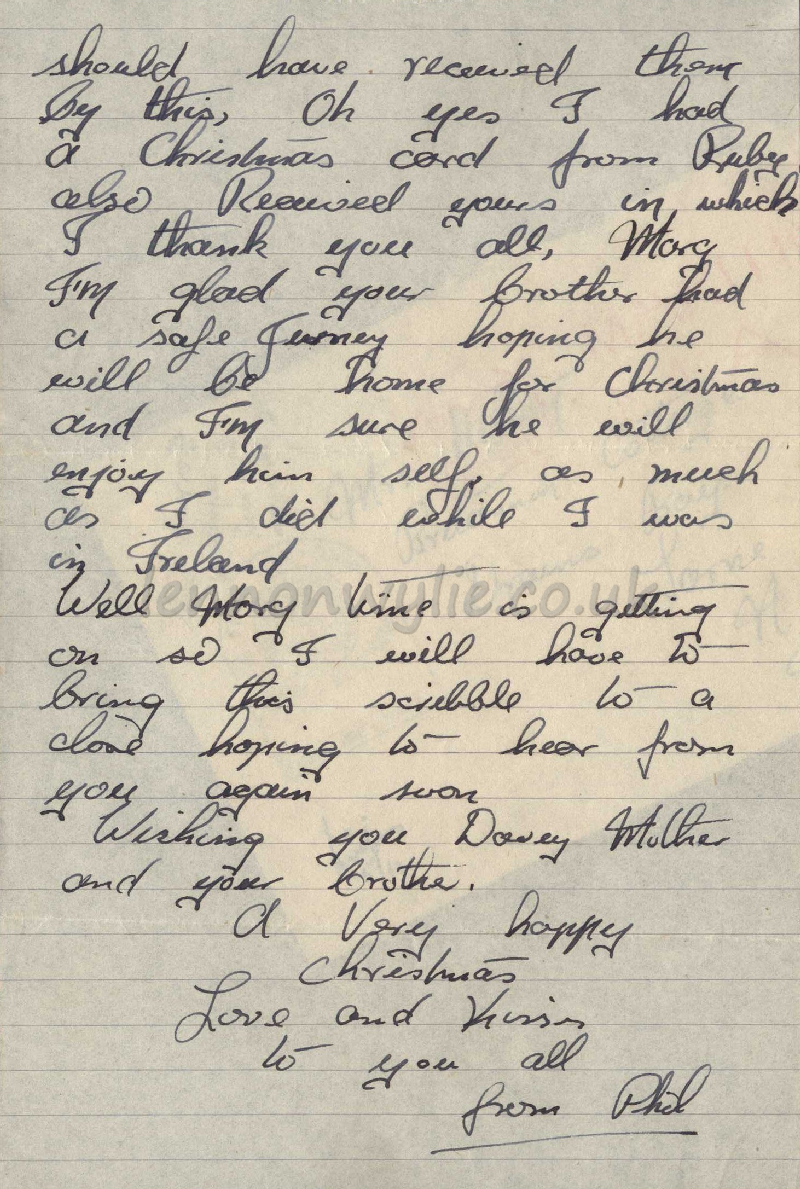 should have received them
By this, Oh yes I had
a Christmas card from Ruby
also Received yours in which
I thank you all, Mary
I'm glad your brother had
a safe Jurney hoping he
will be home for Christmas
and I'm sure he will
enjoy him self, as much
as I did while I was
in Ireland
lennonwylie.co.uk
Well Mary time is getting
on so I will have to
bring this scribble to a
close hoping to hear from
you again soon
Wishing you Davey Mother
and your brothe.
A Very happy
Christmas
Love and Kisses
to you all
from Phil